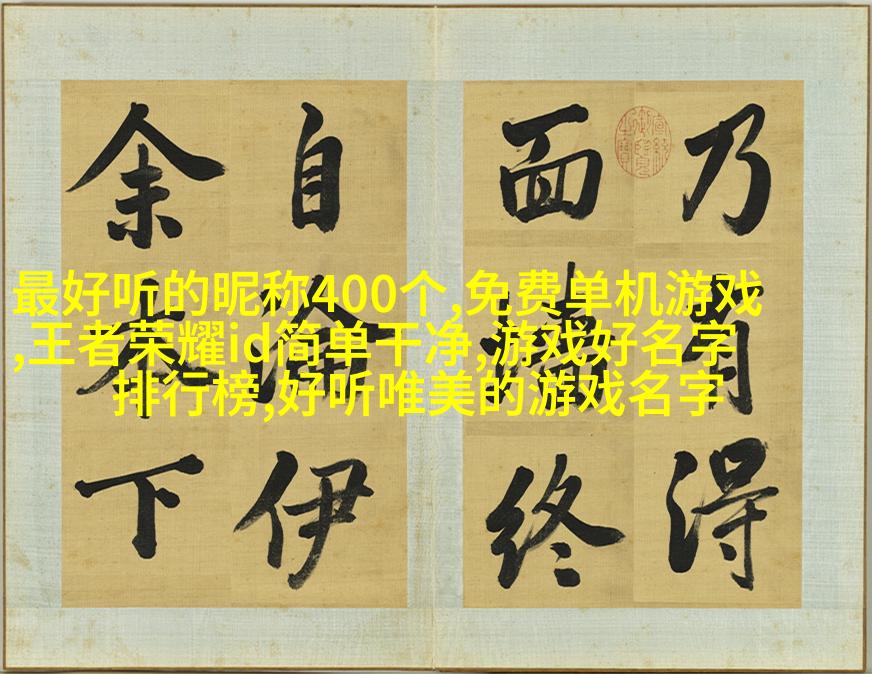 最好听的昵称400个,免费单机游戏
,王者荣耀id简单干净,游戏好名字
排行榜,好听唯美的游戏名字
乃得
面终
自伊
余下